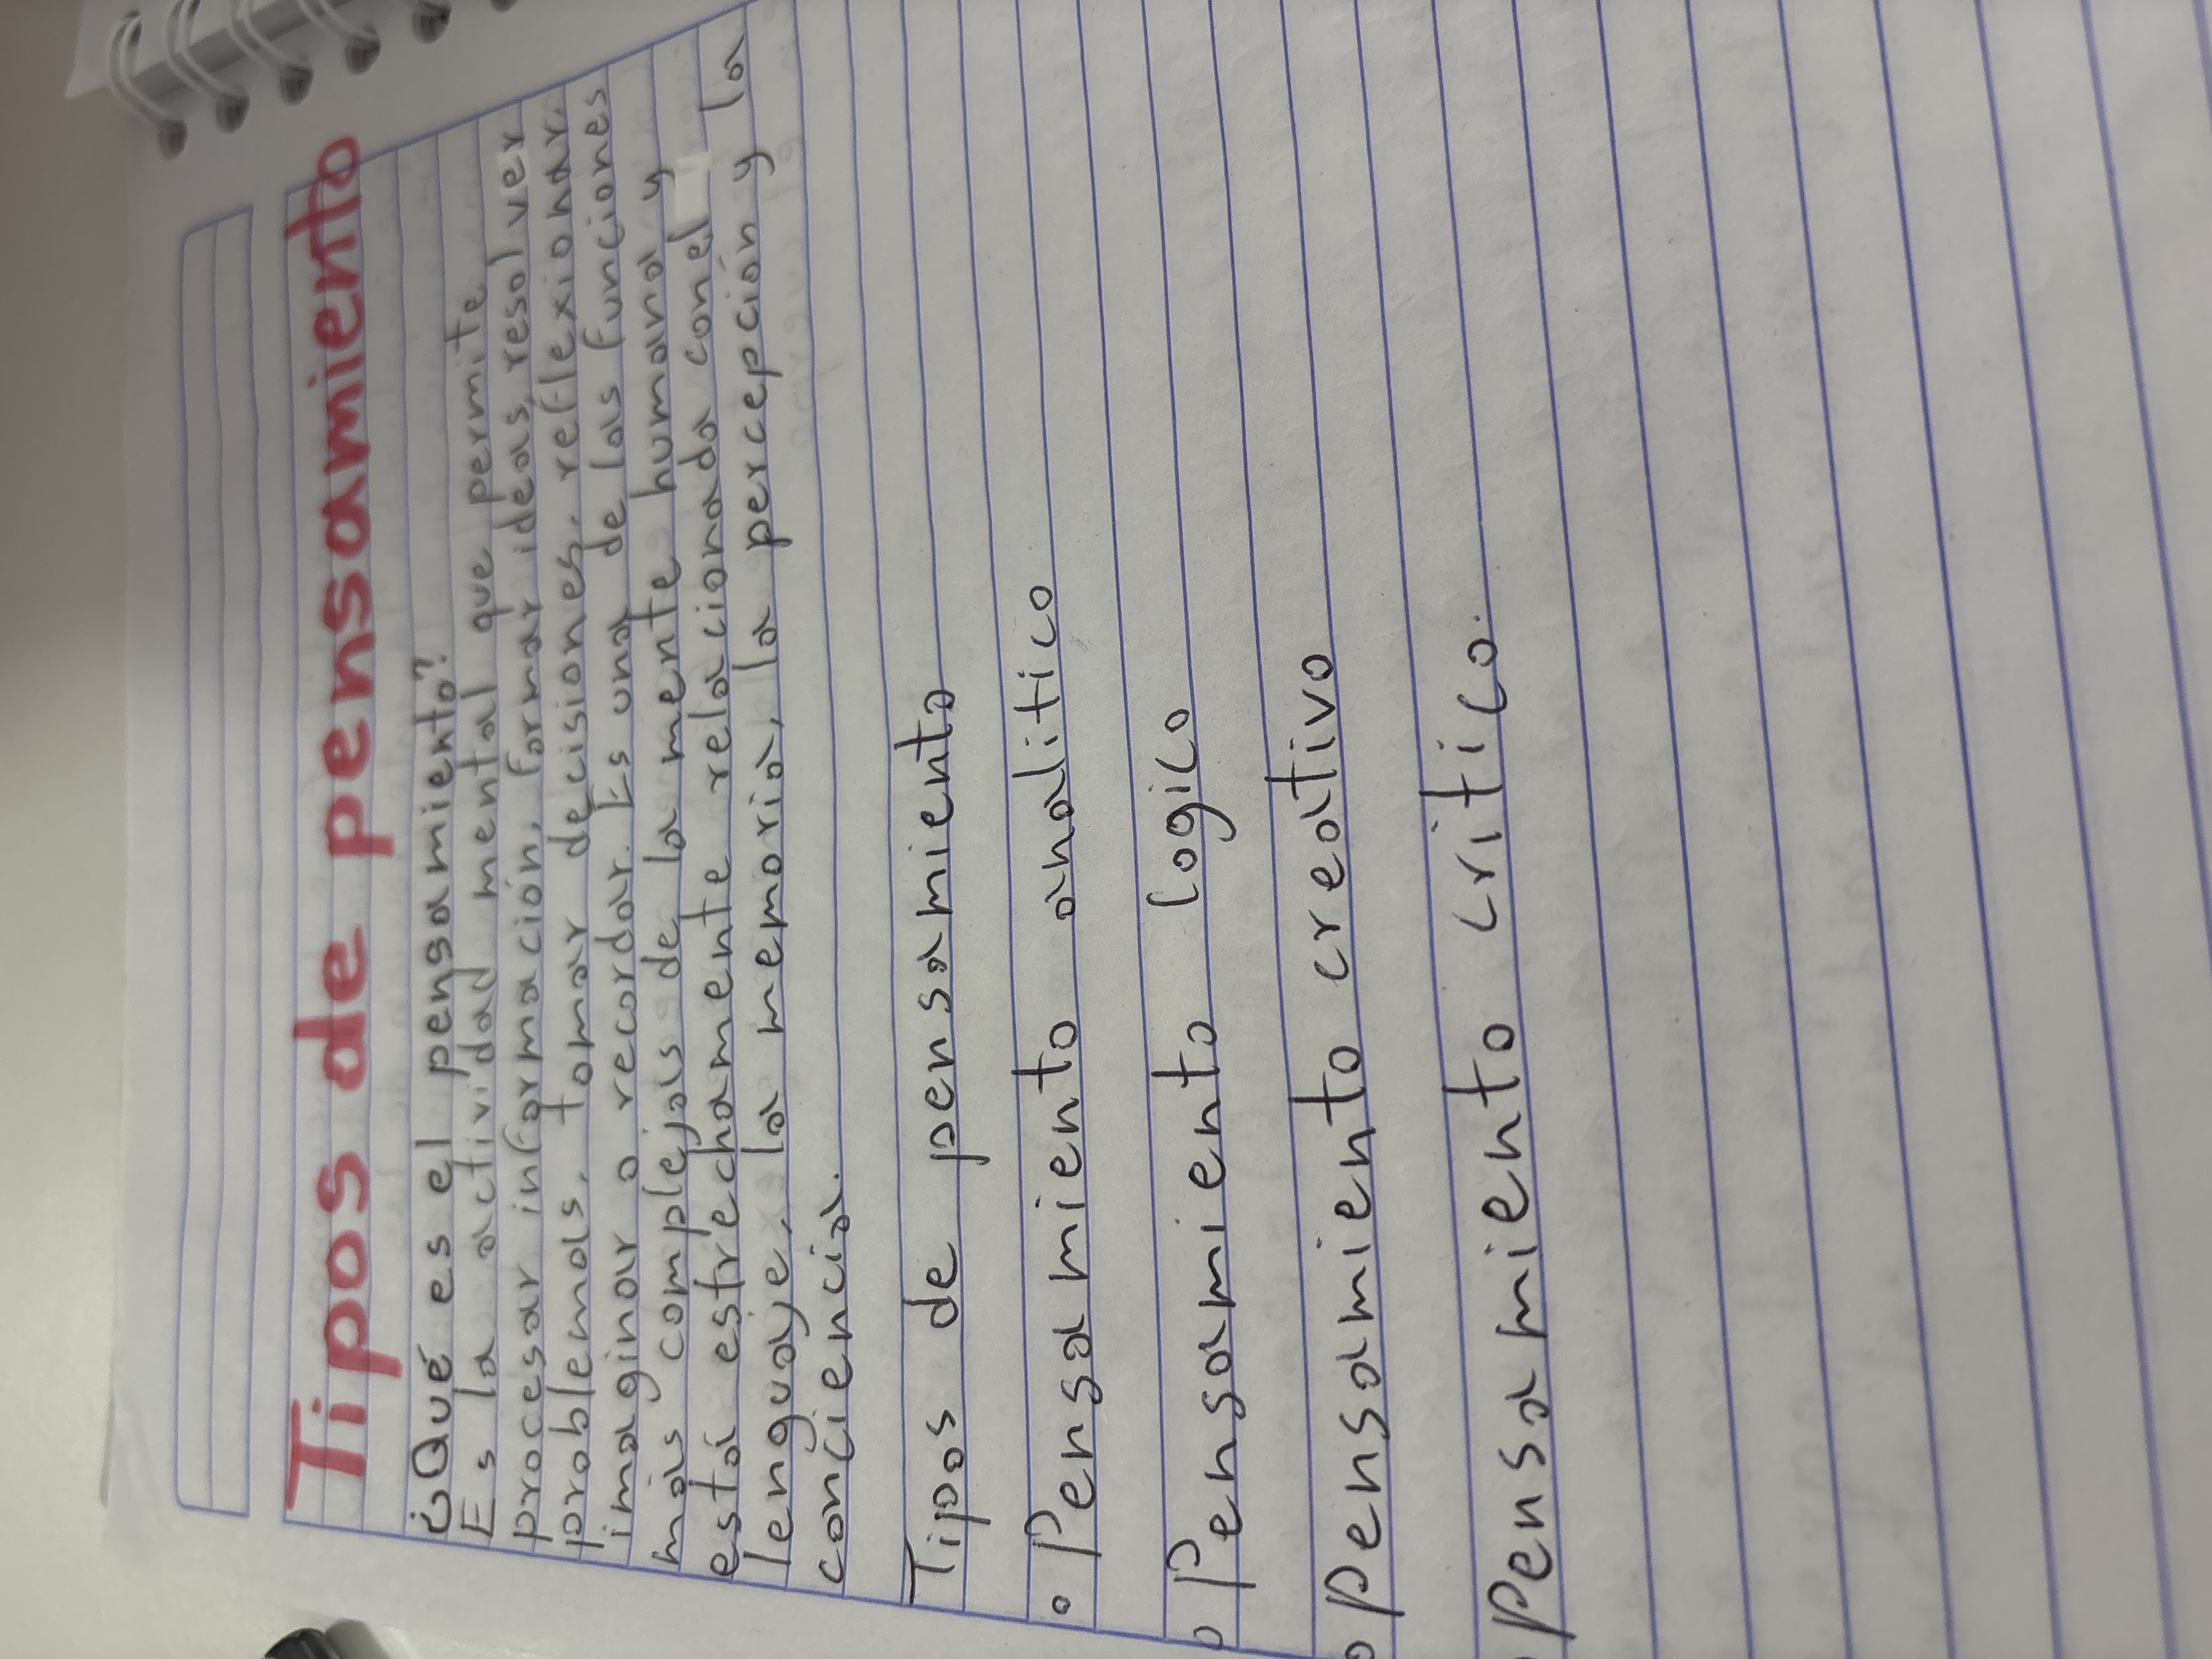 Tipos de pensamiento
¿Qué es el pensamiento?
Es la actividad mental que permite
procesar información, formar ideas, resolver
problemas, tomar decisiones, reflexionar,
imaginar o recordar. Es una de las funciones
más complejas de la mente humana y
está estrechamente relacionada con el la
lenguaje, la memoria, la percepción y la
conciencia.
Tipos de pensamiento
o Pensamiento analitico
o Pensamiento logico
o Pensamiento creativo
o Pensamiento critico.